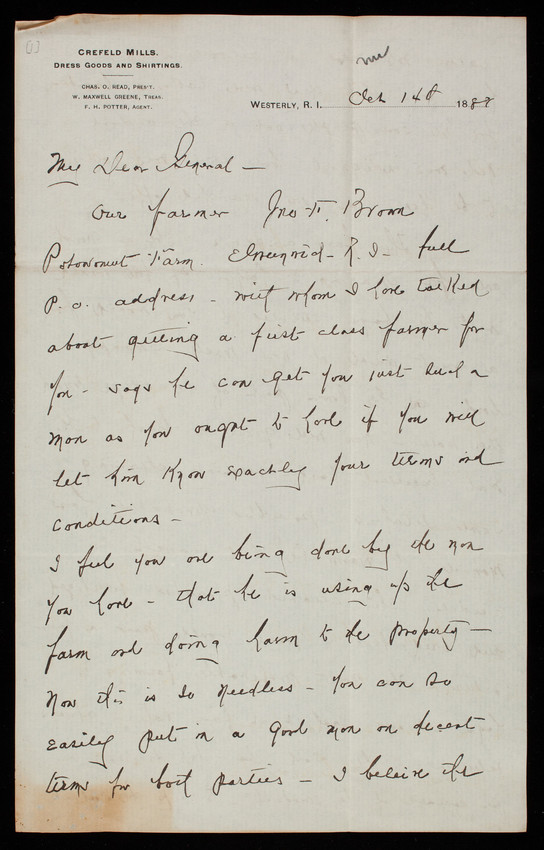 [1]
CREFELD MILLS.
DRESS GOODS AND SHIRTINGS.
CHAS. O. READ, PRES'T.
W. MAXWELL GREENE, TREAS.
F. H. POTTER, AGENT.
WESTERLY, R. I. Oct 14th 1888
My Dear General -
Our farmer Jno. F. Brown
Potowomut Farm. E. Greenwich - R. I - full
P. O. address - with whom I have talked
about getting a first class farmer for
you - says he can get you just such a
man as you ought to have if you will
let him know exactly your terms and
conditions -
I feel you are being done by the man
you have - that he is using up the
farm and doing harm to the property -
Now this is so needless - You can so
easily put in a good man on decent
terms for both parties - I believe the